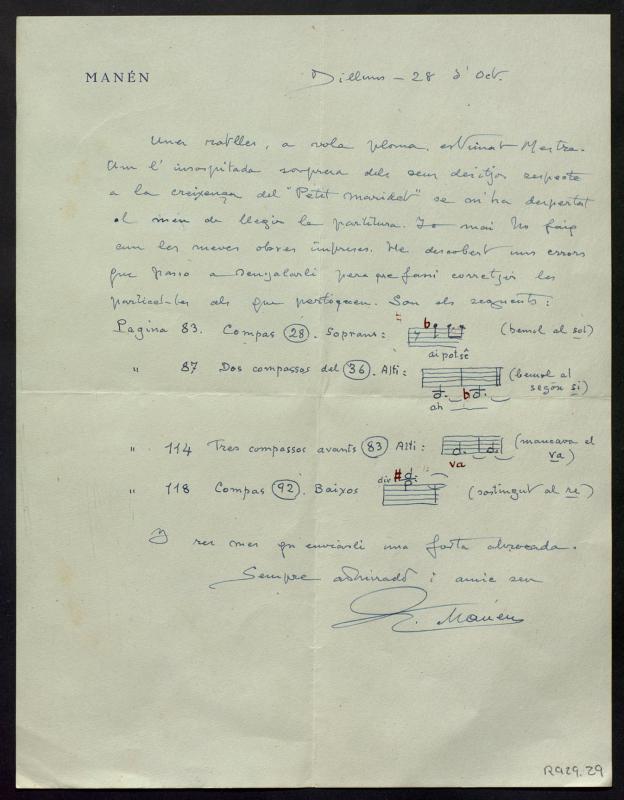 MANÉN
Dilluns - 28 d'Oct.
Unes ratlles, a vola ploma, estimat Mestre.
Am l'insospitada sorpresa dels seus desitjos respecte
a la creixença del "Petit Maridet" se m'ha despertat
el meu de llegir la partitura. Jo mai ho faig
am les meves obres impreses. He descobert uns errors
que passo a senyalarli perque fassi corretgir les
particel·les als que pertoquen. Son els seguents:
Pagina 83. Compas 28. Soprans: (bemol al sol)
ai pot sê
" 87 Dos compassos del 36. Alti: (bemol al
segón si)
ah
" 114 Tres compassos avants 83 Alti: (mancava el
va)
va
" 118 Compas 92. Baixos div (sostingut al re)
Y res mes qu'enviarli una forta abraçada.
Sempre admirador i amic seu
Manén
R929.29